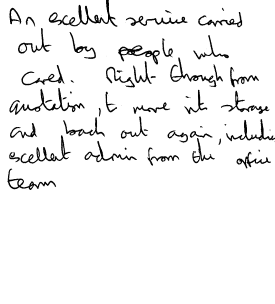 An excellent service carried
out by people who
cared. Right through from
quotation, to move into storage
and back out again, including
excellent admin from the office
team